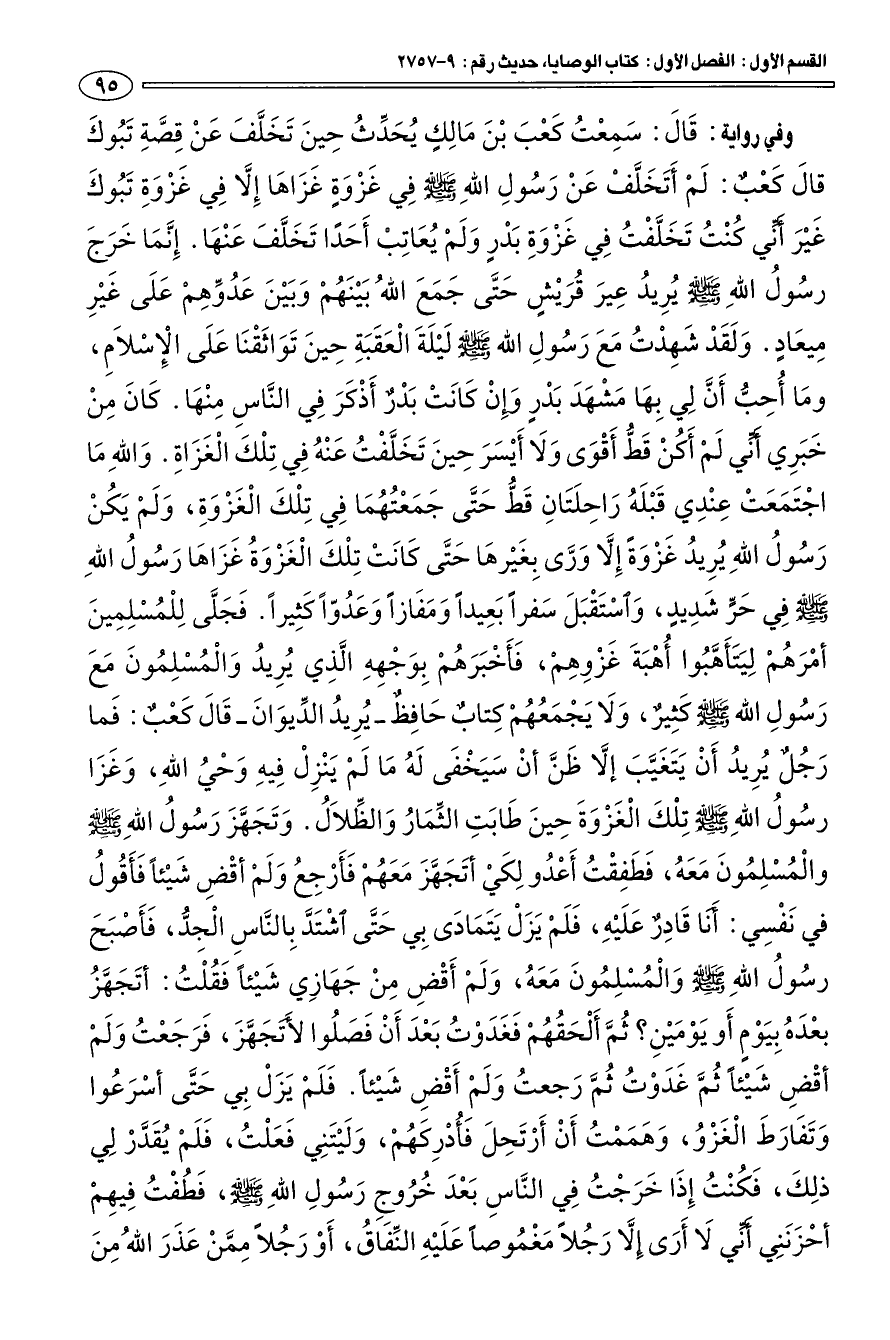 القسم الأول: الفصل الأول: كتاب الوصايا، حديث رقم: ٩-٢٧٥٧
٩٥
وفي رواية: قَالَ: سَمِعْتُ كَعْبَ بْنَ مَالِكٍ يُحَدِّثُ حِينَ تَخَلَّفَ عَنْ قِصَّةِ تَبُوكَ
قالَ كَعْبٌ: لَمْ أَتَخَلَّفْ عَنْ رَسُولِ اللهِ ﷺ فِي غَزْوَةٍ غَزَاهَا إِلَّا فِي غَزْوَةِ تَبُوكَ
غَيْرَ أَنِّي كُنْتُ تَخَلَّفْتُ فِي غَزْوَةِ بَدْرٍ وَلَمْ يُعَاتِبْ أَحَدًا تَخَلَّفَ عَنْهَا. إِنَّمَا خَرَجَ
رسُولُ اللهِ ﷺ يُرِيدُ عِيرَ قُرَيْشٍ حَتَّى جَمَعَ اللهُ بَيْنَهُمْ وَبَيْنَ عَدُوِّهِمْ عَلَى غَيْرِ
مِيعَادٍ. وَلَقَدْ شَهِدْتُ مَعَ رَسُولِ الله ﷺ لَيْلَةَ الْعَقَبَةِ حِينَ تَوَاثَقْنَا عَلَى الْإِسْلَامِ،
ومَا أُحِبُّ أَنَّ لِي بِهَا مَشْهَدَ بَدْرٍ وَإِنْ كَانَتْ بَدْرٌ أَذْكَرَ فِي النَّاسِ مِنْهَا. كَانَ مِنْ
خَبَرِي أَنِّي لَمْ أَكُنْ قَطُّ أَقْوَى وَلَا أَيْسَرَ حِينَ تَخَلَّفْتُ عَنْهُ فِي تِلْكَ الْغَزَاةِ. وَاللهِ مَا
اجْتَمَعَتْ عِنْدِي قَبْلَهُ رَاحِلَتَانِ قَطُّ حَتَّى جَمَعْتُهُمَا فِي تِلْكَ الْغَزْوَةِ، وَلَمْ يَكُنْ
رَسُولُ اللهِ يُرِيدُ غَزْوَةً إِلَّا وَرَّى بِغَيْرِهَا حَتَّى كَانَتْ تِلْكَ الْغَزْوَةُ غَزَاهَا رَسُولُ اللهِ
ﷺ فِي حَرٍّ شَدِيدٍ، وَٱسْتَقْبَلَ سَفراً بَعِيداً وَمَفَازاً وَعَدُوّاً كَثِيراً. فَجَلَّى لِلْمُسْلِمِينَ
أمْرَهُمْ لِيَتَأَهَّبُوا أُهْبَةَ غَزْوِهِمْ، فَأَخْبَرَهُمْ بِوَجْهِهِ الَّذِي يُرِيدُ وَالْمُسْلِمُونَ مَعَ
رَسُولِ الله ﷺ كَثِيرٌ، وَلَا يَجْمَعُهُمْ كِتابٌ حَافِظٌ ـ يُرِيدُ الدِّيوَانَ ـ قَالَ كَعْبٌ: فَما
رَجُلٌ يُرِيدُ أَنْ يَتَغَيَّبَ إلَّا ظَنَّ أنْ سَيَخْفَى لَهُ مَا لَمْ يَنْزِلْ فِيهِ وَحْيُ اللهِ، وَغَزَا
رسُولُ اللهِ ﷺ تِلْكَ الْغَزْوَةَ حِينَ طَابَتِ الثِّمَارُ وَالظِّلاَلُ. وَتَجَهَّزَ رَسُولُ اللهِ ﷺ
والْمُسْلِمُونَ مَعَهُ، فَطَفِقْتُ أَغْدُو لِكَيْ أتَجَهَّزَ مَعَهُمْ فَأَرْجِعُ وَلَمْ أقْضِ شَيْئاً فَأَقُولُ
في نَفْسِي: أَنَا قَادِرٌ عَلَيْهِ، فَلَمْ يَزَلْ يَتَمَادَى بِي حَتَّى ٱشْتَدَّ بِالنَّاسِ الْجِدُّ، فَأَصْبَحَ
رسُولُ اللهِ ﷺ وَالْمُسْلِمُونَ مَعَهُ، وَلَمْ أَقْضِ مِنْ جَهَازِي شَيْئاً فَقُلْتُ: أتَجَهَّزُ
بعْدَهُ بِيَوْمٍ أَو يَوْمَيْنِ؟ ثُمَّ أَلْحَقُهُمْ فَغَدَوْتُ بَعْدَ أَنْ فَصَلُوا لأَتَجَهَّزَ، فَرَجَعْتُ وَلَمْ
أقْضِ شَيْئاً ثُمَّ غَدَوْتُ ثُمَّ رَجعتُ وَلَمْ أَقْضِ شَيْئاً. فَلَمْ يَزَلْ بِي حَتَّى أسْرَعُوا
وَتَفَارَطَ الْغَزْوُ، وَهَمَمْتُ أَنْ أَرْتَحِلَ فَأُدْرِكَهُمْ، وَلَيْتَنِي فَعَلْتُ، فَلَمْ يُقَدَّرْ لِي
ذلِكَ، فَكُنْتُ إِذَا خَرَجْتُ فِي النَّاسِ بَعْدَ خُرُوجِ رَسُولِ اللهِ ﷺ، فَطُفْتُ فِيهِمْ
أحْزَنَنِي أَنِّي لَا أَرَى إِلَّا رَجُلاً مَغْمُوصاً عَلَيْهِ النِّفَاقُ، أَوْ رَجُلاً مِمَّنْ عَذَرَ اللهُ مِنَ